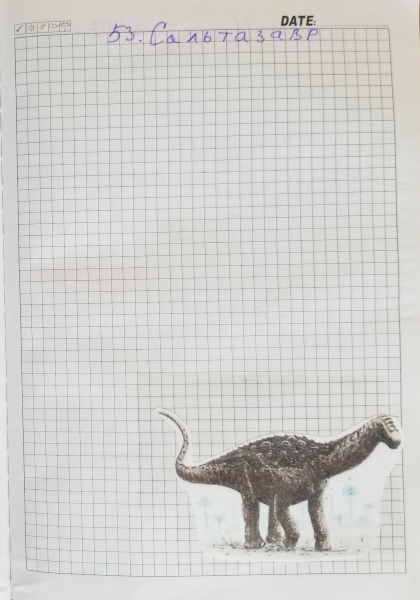 DATE:
53. Сальтазавр